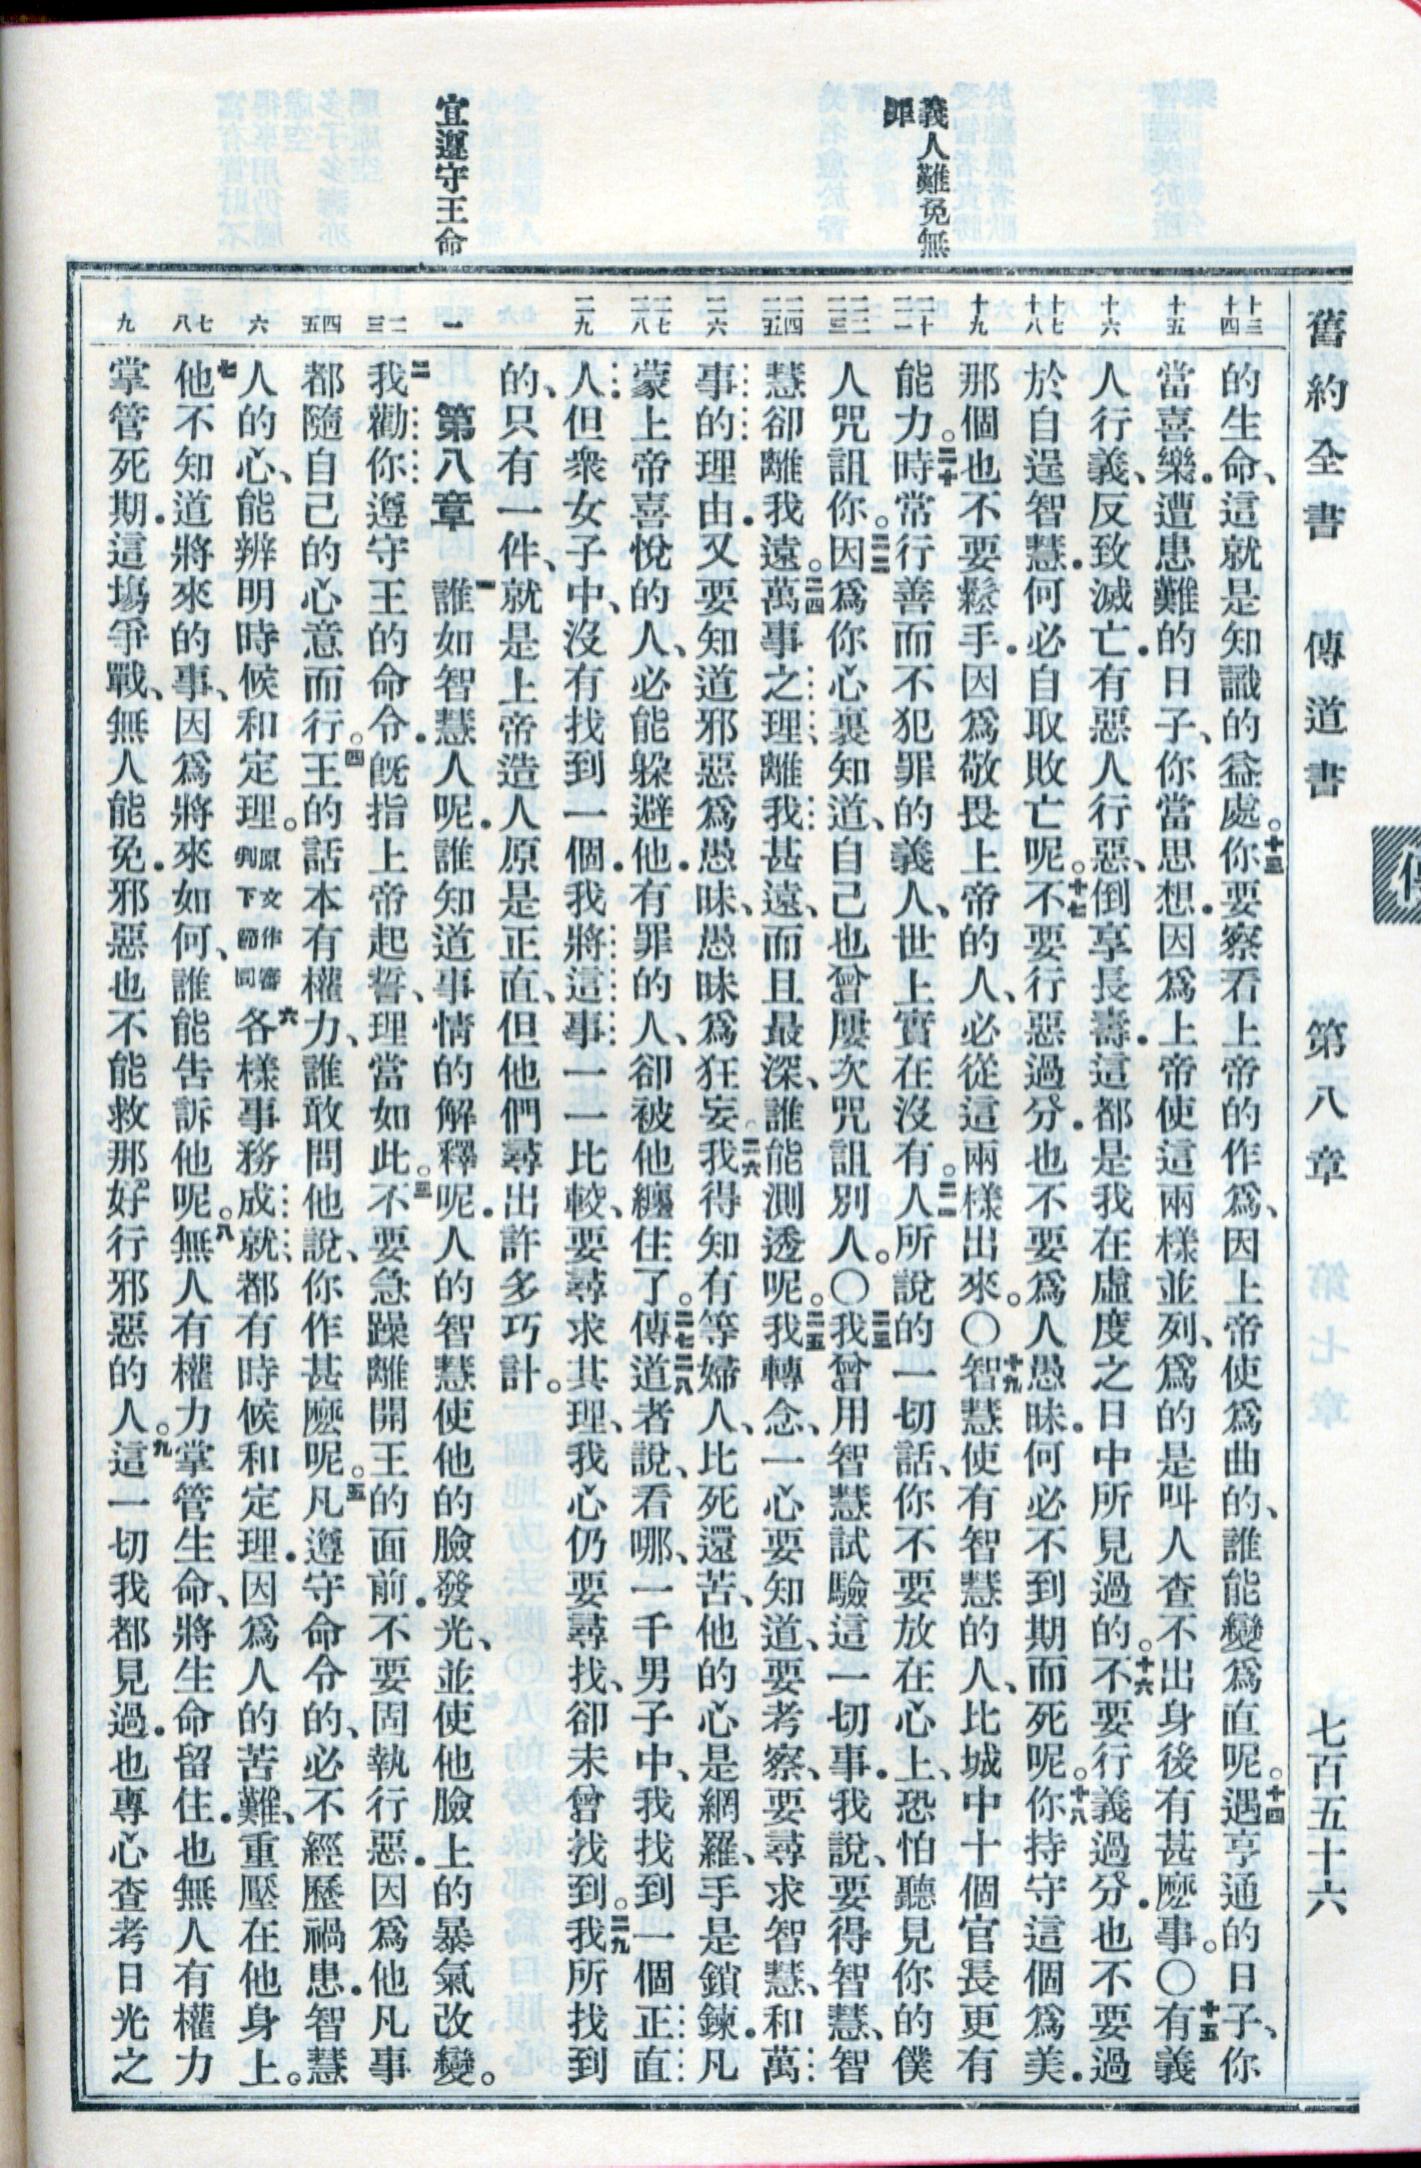 舊約全書 傳道書 第八章 七百五十六
義人難免無
罪
宜遵守王命
十三
十四
十五
十六
十七
十八
十九
二十
二一
二二
二三
二四
二五
二六
二七
二八
二九
一
二
三
四
五
六
七
八
九
的生命、這就是知識的益處。十三你要察看上帝的作爲、因上帝使爲曲的、誰能變爲直呢。十四遇亨通的日子、你
當喜樂．遭患難的日子、你當思想．因爲上帝使這兩樣並列、爲的是叫人查不出身後有甚麼事。〇十五有義
人行義、反致滅亡．有惡人行惡、倒享長壽．這都是我在虛度之日中所見過的。十六不要行義過分．也不要過
於自逞智慧．何必自取敗亡呢。十七不要行惡過分．也不要爲人愚昧．何必不到期而死呢。十八你持守這個爲美．
那個也不要鬆手．因爲敬畏上帝的人、必從這兩樣出來。〇十九智慧使有智慧的人、比城中十個官長更有
能力。二十時常行善而不犯罪的義人、世上實在沒有。二一人所說的一切話、你不要放在心上、恐怕聽見你的僕
人咒詛你。二二因爲你心裏知道、自己也曾屢次咒詛別人。〇二三我曾用智慧試驗這一切事．我說、要得智慧、智
慧卻離我遠。二四萬事之理、離我甚遠、而且最深、誰能測透呢。二五我轉念、一心要知道、要考察、要尋求智慧、和萬
事的理由．又要知道邪惡爲愚昧、愚昧爲狂妄。二六我得知有等婦人、比死還苦、他的心是網羅、手是鎖鍊．凡
蒙上帝喜悅的人、必能躲避他．有罪的人、卻被他纏住了。二七二八傳道者說、看哪、一千男子中、我找到一個正直
人．但衆女子中、沒有找到一個．我將這事一一比較、要尋求其理、我心仍要尋找、卻未曾找到。二九我所找到
的、只有一件、就是上帝造人原是正直、但他們尋出許多巧計。
第八章 一誰如智慧人呢．誰知道事情的解釋呢．人的智慧使他的臉發光、並使他臉上的暴氣改變。
二我勸你遵守王的命令．旣指上帝起誓、理當如此。三不要急躁離開王的面前．不要固執行惡．因爲他凡事
都隨自己的心意而行。四王的話本有權力、誰敢問他說、你作甚麼呢。五凡遵守命令的、必不經歷禍患．智慧
人的心、能辨明時候和定理。原文作審判下節同六各樣事務成就、都有時候和定理．因爲人的苦難、重壓在他身上。
七他不知道將來的事、因爲將來如何、誰能吿訴他呢。八無人有權力掌管生命、將生命留住．也無人有權力
掌管死期．這場爭戰、無人能免．邪惡也不能救那好行邪惡的人。九這一切我都見過．也專心查考日光之